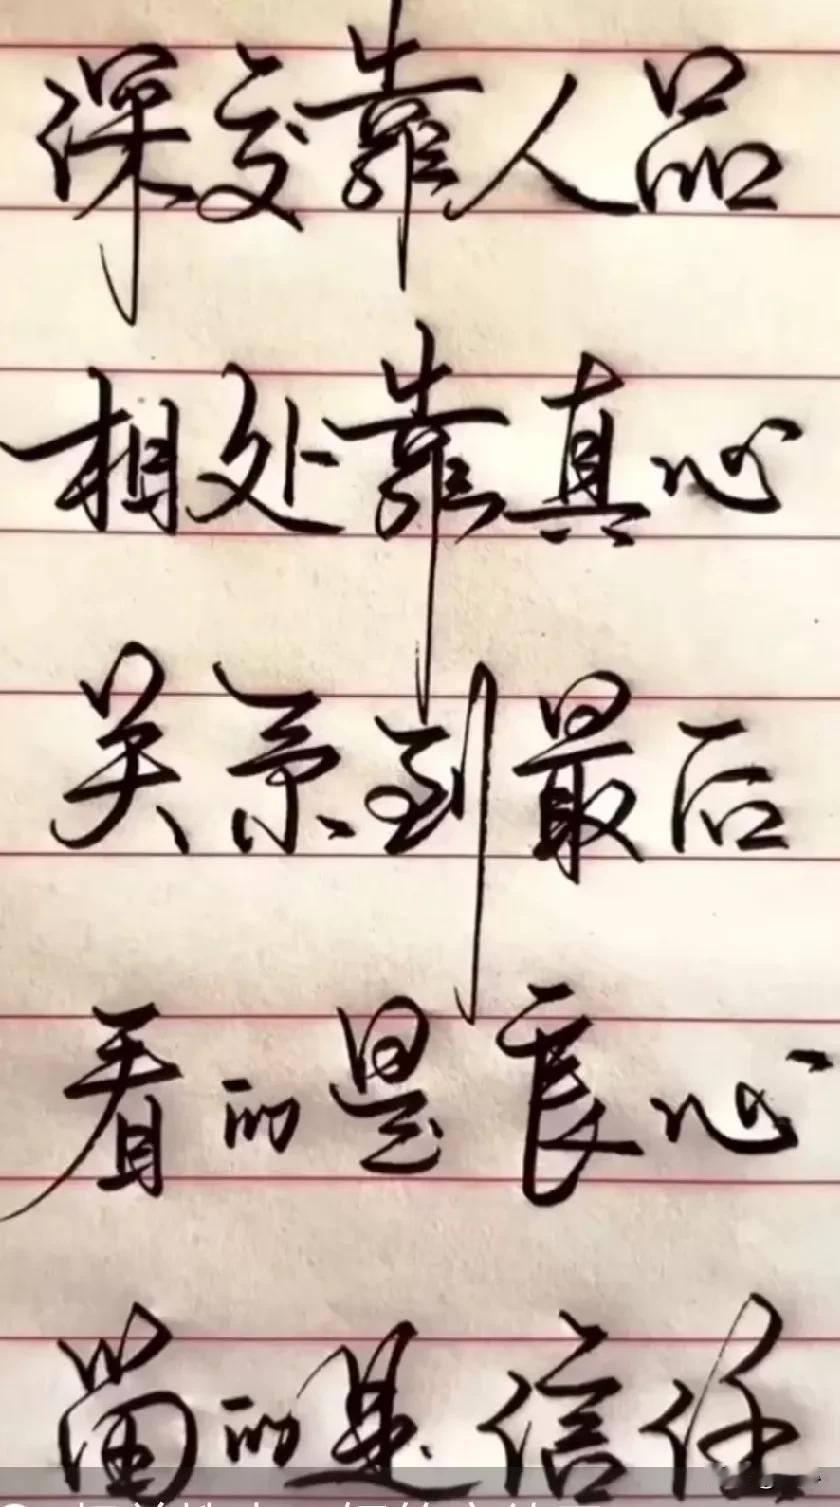 深交靠人品
相处靠真心
关系到最后
看的是良心
留的是信任